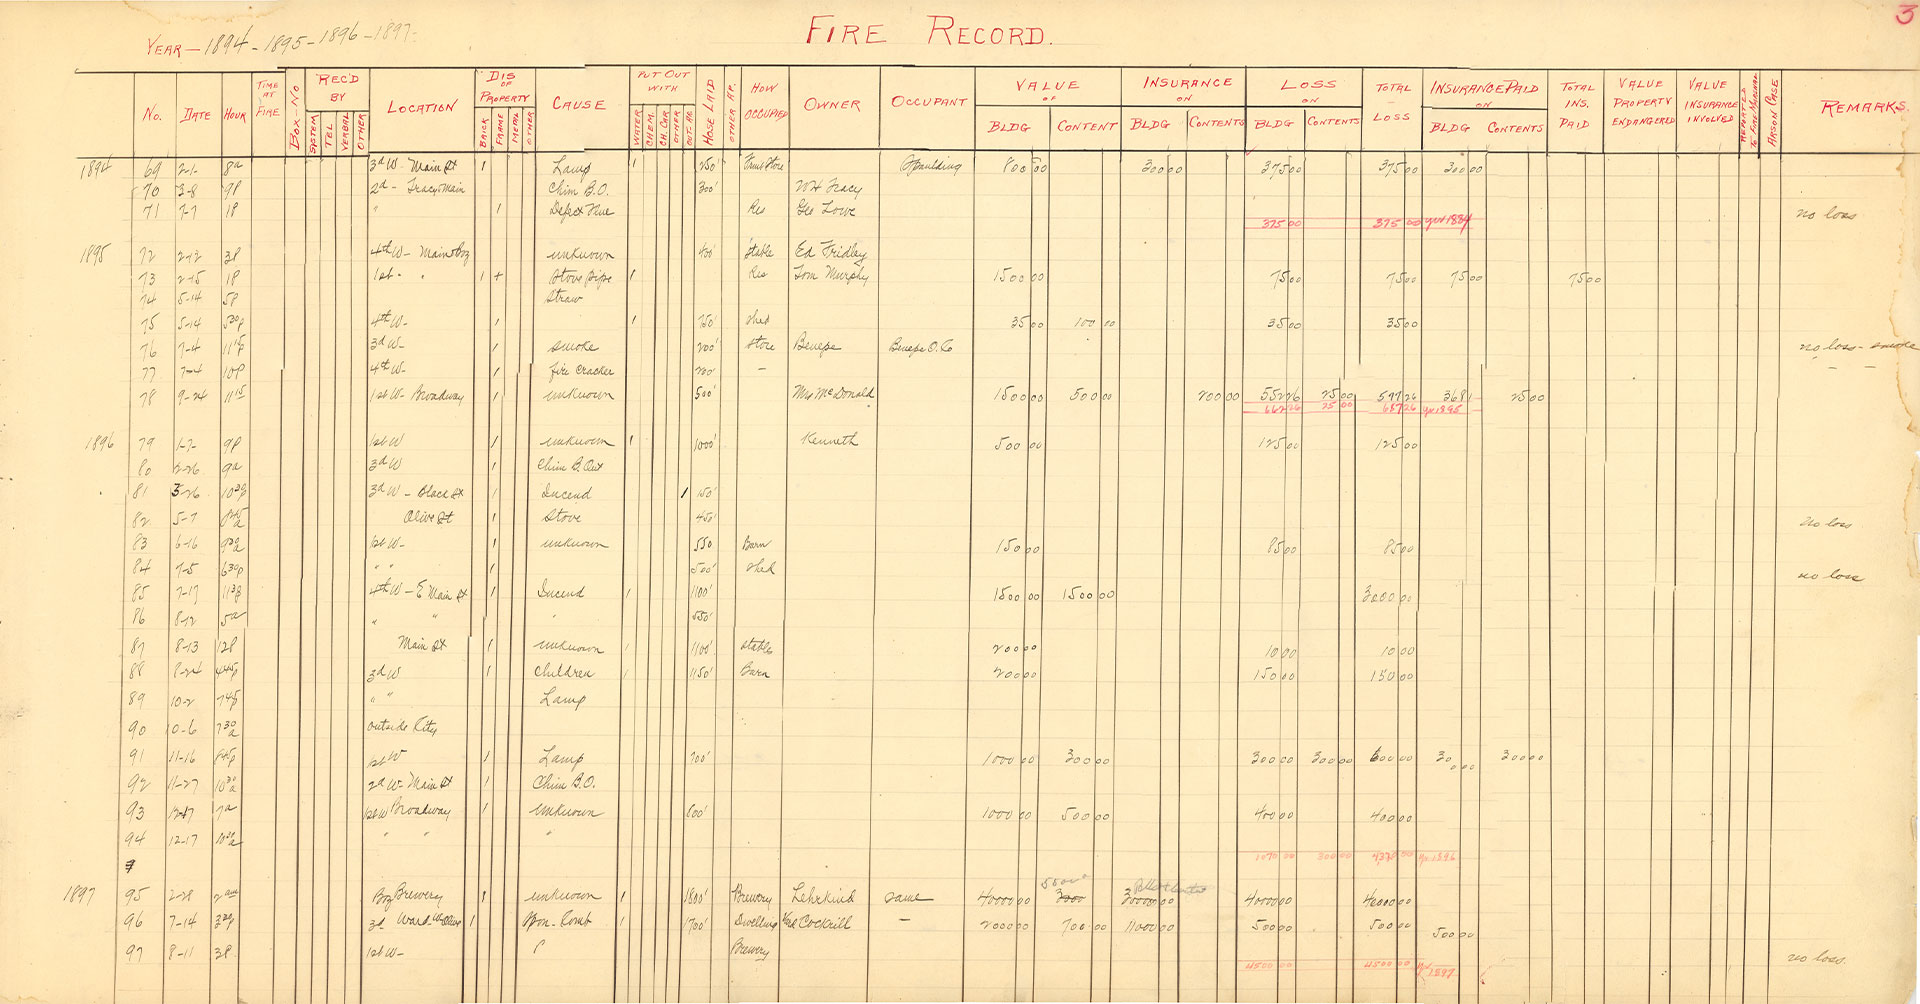 3
FIRE RECORD.
YEAR - 1894 - 1895 - 1896 - 1897
No. DATE HOUR TIME AT FIRE BOX-NO REC'D BY SYSTEM TEL VERBAL OTHER LOCATION DIS OF PROPERTY BRICK FRAME METAL OTHER CAUSE PUT OUT WITH WATER CHEM. CH. CAR. OTHER HOSE LAID OTHER AP. HOW OCCUPIED OWNER OCCUPANT VALUE OF BLDG CONTENT INSURANCE ON BLDG CONTENTS LOSS ON BLDG CONTENTS TOTAL LOSS INSURANCE PAID ON BLDG CONTENTS TOTAL INS. PAID VALUE PROPERTY ENDANGERED VALUE INSURANCE INVOLVED REPORTED TO FIRE MARSHAL ARSON CASE REMARKS.
1894 69 2-1- 8a 3d W- Main St 1 Lamp 1 250' Fruit Store Spaulding 800 00 300 00 375 00 375 00 300 00
70 3-8 9P 2d - Tracy & Main Chim B.O. 300' WH Tracy
71 7-7 1P " 1 Defect Flue Res Geo Lowe no loss
375 00 375 00 yr 1894
1895 72 2-12 3P 4th W- Main & Boz unknown Stable Ed Fridley
73 2-15 1P 1st - " 1 + Stove pipe 1 Res Tom Murphy 1500 00 75 00 75 00 75 00 75 00
74 5-14 5P Straw
75 5-14 5 30 P 4th W- 1 1 750' Shed 35 00 100 00 35 00 35 00
76 7-4 11 15 P 3d W- 1 smoke 200' Store Benepe Benepe O. Co no loss - smoke
77 7-4 10P 4th W- 1 fire cracker 200' - " - -
78 9-24 11 15 1st W- Broadway 1 unknown 500' Mrs McDonald 1500 00 500 00 200 00 552 26 25 00 577 26 368 1 25 00
662 26 25 00 687 26 yr 1895
1896 79 1-7- 9P 1st W 1 unknown 1 1000' Kenneth 500 00 125 00 125 00
80 2-26 9a 3d W 1 Chim B. Out
81 3-26 10 30 P 3d W - Black St 1 Incend 1 150'
82 5-7 8 45 a Olive St 1 Stove 450' no loss
83 6-16 9 30 a 1st W- 1 unknown 550 Barn 150 00 85 00 85 00
84 7-5 6 30 P " " 1 500' Shed no loss
85 7-17 11 30 4th W - E Main St 1 Incend 1 1100' 1500 00 1500 00 3000 00
86 8-12 5a " " " 550'
87 8-13 12P Main St 1 unknown 1 1100' Stable 200 00 10 00 10 00
88 8-24 4 45 P 3d W 1 Children 1 1150' Barn 200 00 150 00 150 00
89 10-2 7 45 P " " Lamp
90 10-6 7 30 a outside City
91 11-16 8 45 P 1st W 1 Lamp 700' 1000 00 300 00 300 00 300 00 600 00 300 00
92 11-27 10 30 a 2d W- Main St 1 Chim B.O.
93 12-17 7a 1st W Broadway 1 unknown 800' 1000 00 500 00 400 00 400 00
94 12-17 10 30 a " " "
1070 00 300 00 4370 00 yr 1896
1897 95 2-28 2 am Boz Brewery 1 unknown 1 1800' Brewery Lehrkind same 40000 00 5500 30000 00 4000 00 4000 00
96 7-14 3 30 P 3d Ward W Olive 1 Spon - Comb 1 1700' Dwelling Cockrill - 2000 00 700 00 1100 00 500 00 500 00 500 00
97 8-11 3P 1st W- Brewery no loss.
4500 00 4500 00 yr 1897